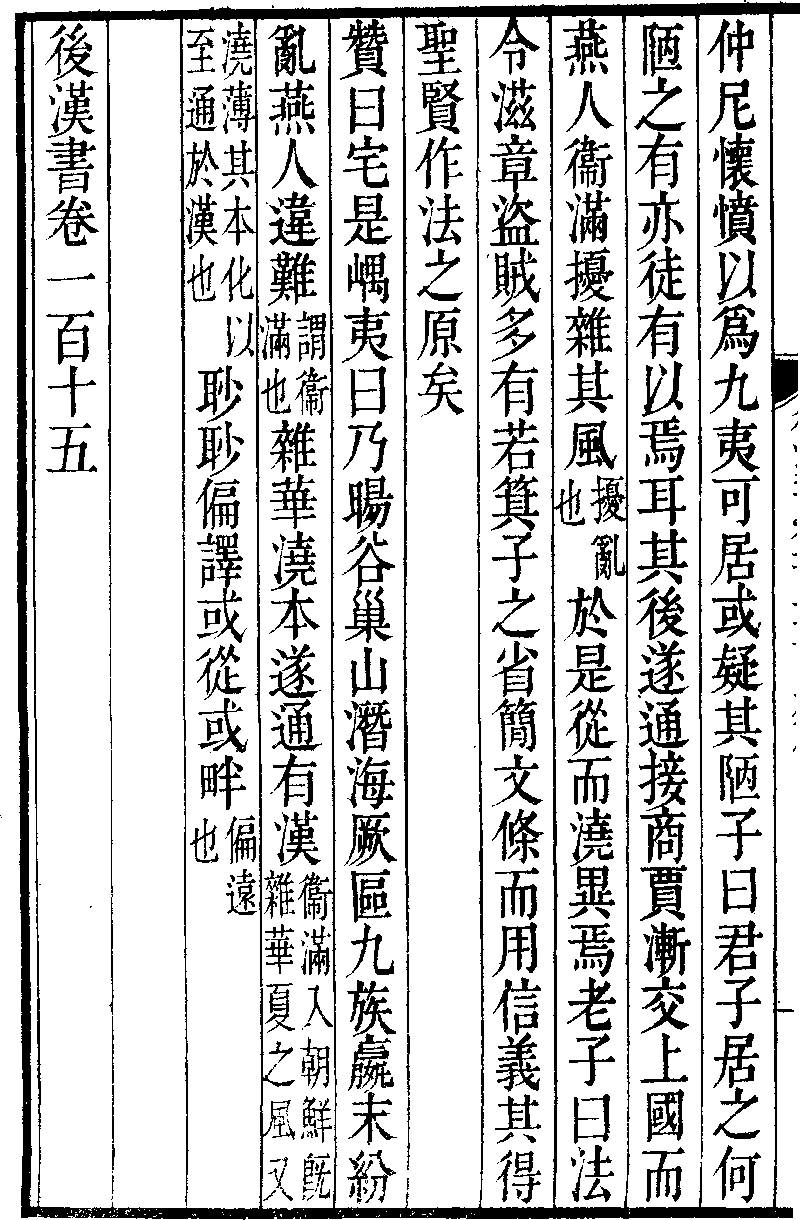 仲尼懷憤以爲九夷可居或疑其陋子曰君子居之何
陋之有亦徒有以焉耳其後遂通接商賈漸交上國而
燕人衞滿擾雜其風擾亂也於是從而澆異焉老子曰法
令滋章盜賊多有若箕子之省簡文條而用信義其得
聖賢作法之原矣
贊曰宅是嵎夷曰乃暘谷巢山潛海厥區九族嬴末紛
亂燕人違難謂衞滿也雜華澆本遂通有漢衞滿入朝鮮旣雜華夏之風又
澆薄其本化以至通於漢也眇眇偏譯或從或畔偏遠也
後漢書卷一百十五